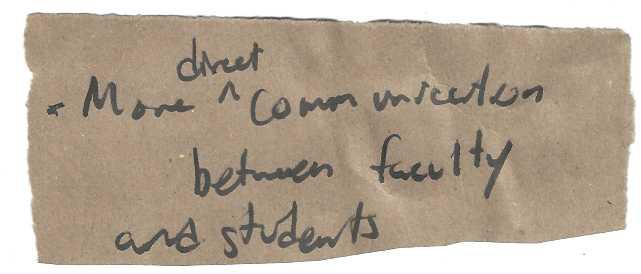 - More ^ direct Communication
between faculty
and students